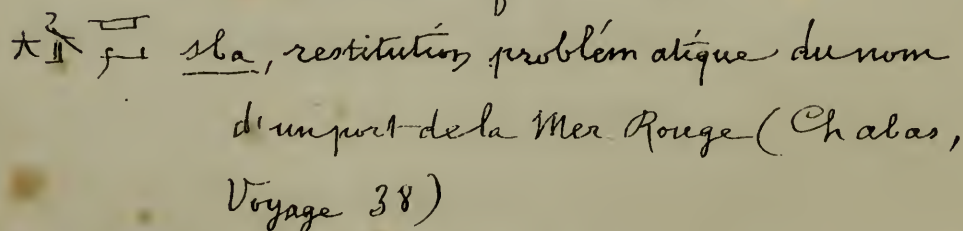 sba, restitution problématique du nom
d'un port de la Mer Rouge (Chabas,
Voyage 38)